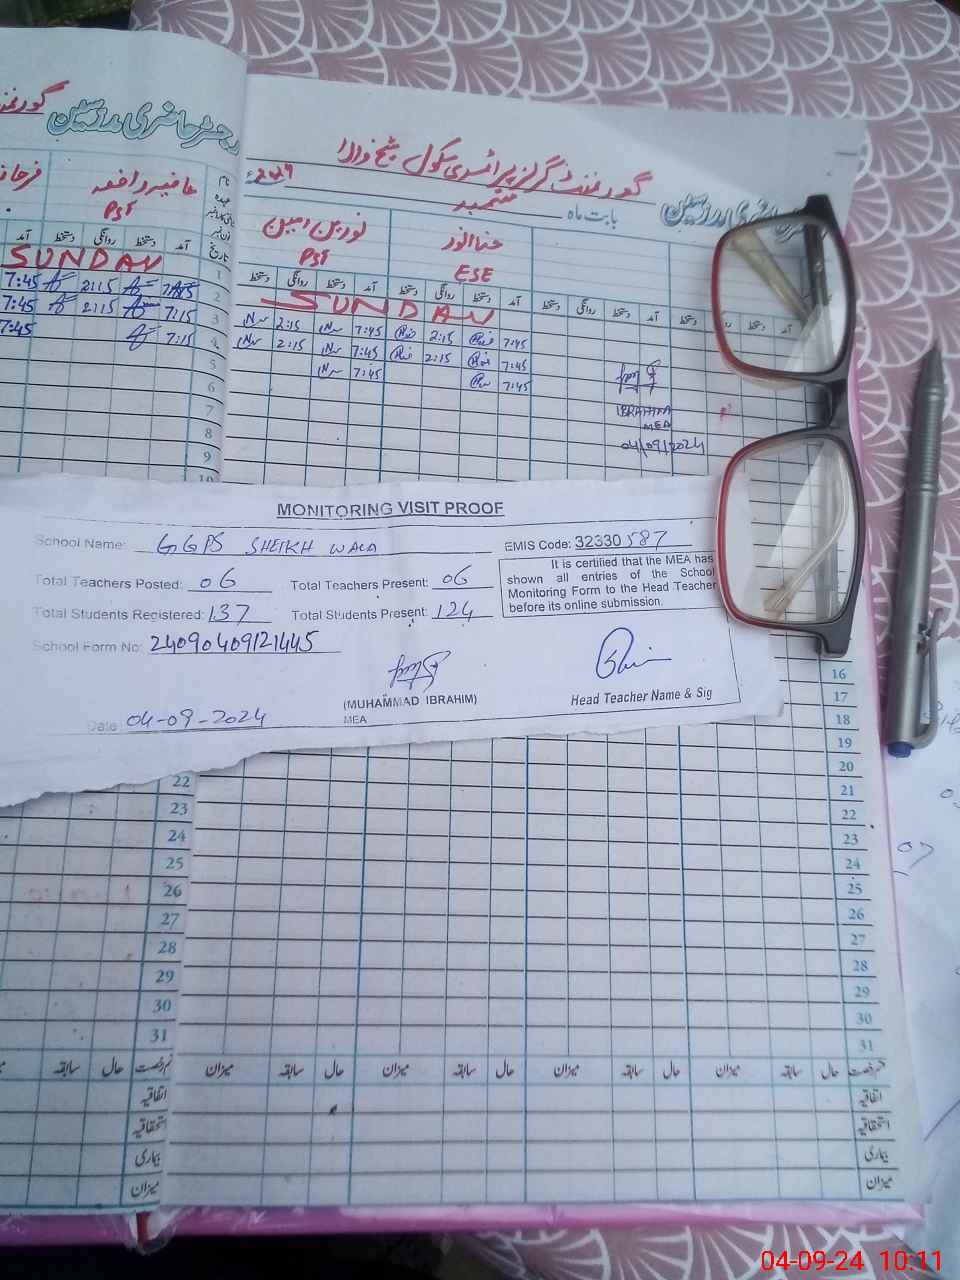 رجسٹر حاضری مدرسین
گورنمنٹ گرلز پرائمری سکول شیخ والا
بابت ماہ ستمبر 2024ء
نام
عہدہ
تاریخ
حافیہ رافعہ
PST
نورین امین
PST
حنا انور
ESE
آمد دستخط روانگی دستخط آمد
دستخط روانگی دستخط آمد دستخط روانگی دستخط آمد دستخط روانگی دستخط آمد دستخط دستخط آمد
SUNDAY
SUNDAY
7:45 2:15 7:15
7:45 2:15 7:15
7:45 7:15
2:15 7:45 2:15 7:45
2:15 7:45 2:15 7:45
7:45 7:45
1
2
3
4
5
6
7
8
9
10
IBRAHIM
MEA
04/09/2024
MONITORING VISIT PROOF
School Name: GGPS SHEIKH WALA EMIS Code: 32330587
Total Teachers Posted: 06 Total Teachers Present: 06
Total Students Registered: 137 Total Students Present: 124
It is certified that the MEA has
shown all entries of the School
Monitoring Form to the Head Teacher
before its online submission.
School Form No: 24090409121445
(MUHAMMAD IBRAHIM)
MEA
Head Teacher Name & Sig
Date: 04-09-2024
16
17
18
19
20
21
22 22
23 23
24 24
25 25
26 26
27 27
28 28
29 29
30 30
31 31
رخصت حال سابقہ میزان حال سابقہ میزان حال سابقہ میزان حال سابقہ میزان
رخصت حال سابقہ
اتفاقیہ اتفاقیہ
استحقاقیہ استحقاقیہ
بیماری بیماری
میزان میزان
04-09-24 10:11